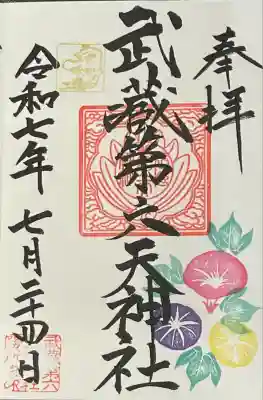 奉拝
武蔵第六天神社
令和七年 七月二十四日